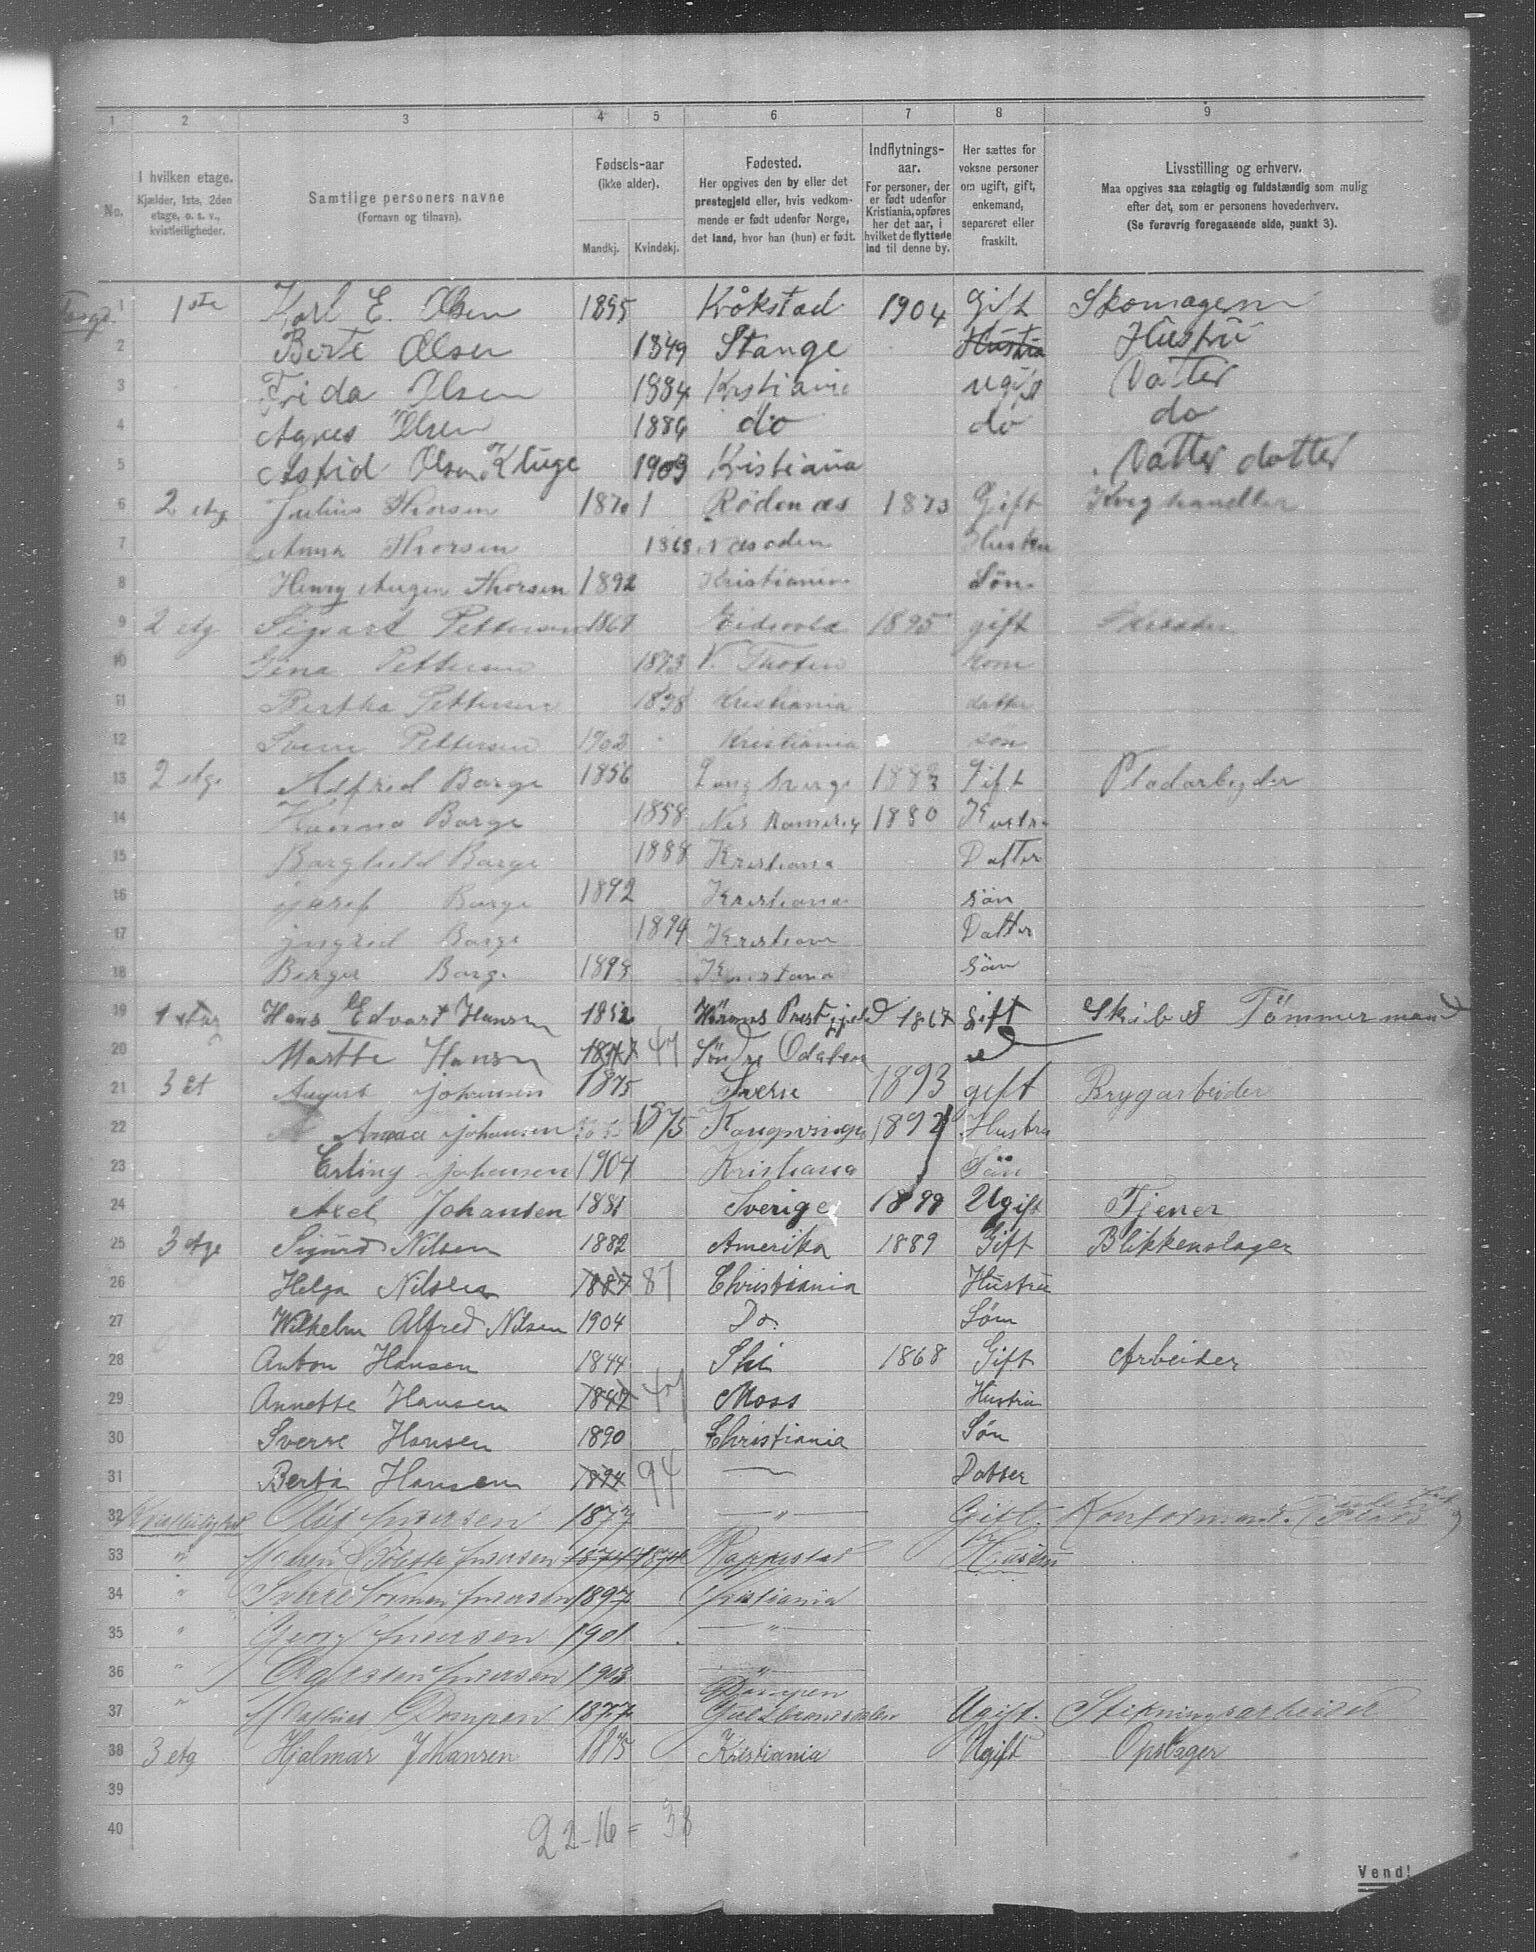 1 2 3 4 5 6 7 8 9
No.
I hvilken etage.
Kjælder, 1ste, 2den
etage, o. s. v.,
kvistleiligheder.
Samtlige personers navne
(Fornavn og tilnavn).
Fødsels-aar
(ikke alder).
Mandkj. Kvindekj.
Fødested.
Her opgives den by eller det
prestegjeld eller, hvis vedkom-
mende er født udenfor Norge,
det land, hvor han (hun) er født.
Indflytnings-
aar.
For personer, der
er født udenfor
Kristiania, opføres
her det aar, i
hvilket de flyttede
ind til denne by.
Her sættes for
voksne personer
om ugift, gift,
enkemand,
separeret eller
fraskilt.
Livsstilling og erhverv.
Maa opgives saa nøiagtig og fuldstændig som mulig
efter det, som er personens hovederhverv.
(Se forøvrig foregaaende side, punkt 3).
1 1ste Karl E. Olsen 1855 Kråkstad 1904 Gift Skomagern
2 Berte Olsen 1849 Stange Hustru Hustru
3 Frida Olsen 1884 Krstiania ugift Datter
4 Agnes Olsen 1886 do do do
5 Astrid Olsen Kluge 1903 Kristiania Datter datter
6 2 etg Julius Thorsen 1870 1 Rödenæs 1873 Gift Kveghandler
7 Anna Thorsen 1868 Næsoden Hustru
8 Henry Thorsen 1892 Kristiania Sön
9 2 etg Sigvart Pettersen 1867 Eidsvold 1895 gift
10 Gina Pettersen 1873 V. Thoten kone
11 Bertha Pettersen 1898 Kristiania datter
12 Pettersen 1902 Kristiania sön
13 2 etg. Alfred Borge 1856 1883 Gift Pladarbejder
14 Hanna Borge 1858 Nes Romerig 1880 Hustru
15 Borghild Borge 1888 Kristiana Datter
16 Borge 1892 Kristiana sön
17 jngrid Borge 1894 Kristiana Datter
18 Borger Borge 1898 Kristiana sön
19 Hans Edvart Hansen 1852 1867 gift Skibs Tömmermand
20 Marthe Hansen 47 Söndre Odalen
21 3 et August Johansen 1875 1893 gift Brygarbeider
22 Anna Johansen 1875 Kongsvinger 1892 Hustru
23 Erling Johansen 1904 Kristiania Sön
24 Axel Johansen 1881 Sverige 1899 Ugift Tjener
25 3 etge Sigurd Nilsen 1882 Amerika 1889 Gift Blikkenslager
26 Helga Nilsen 1887 87 Christiania Hustru
27 Wilhelm Alfred Nilsen 1904 Do. Søn
28 Anton Hansen 1844 Ski 1868 Gift Arbeider
29 Annette Hansen 1847 47 Moss Hustru
30 Sverre Hansen 1890 Christiania Søn
31 Berta Hansen 1894 94 — Datter
32 Oluf Andersen 1877 — " — Gift.
33 " Andersen 1874 1874 Rakkestad Hustru
34 " Sverre Andersen 1897 Kristiania
35 " Georg Andersen 1901 — " —
36 " Andersen 1903 — " —
37 " Mathias Dompen 1877 Guldbrandsdalen Ugift. Stikningsarbeider
38 3 etg Hjalmar Johansen 1875 Kristiania Ugift Opslager
39
40
22-16 = 38
Vend!